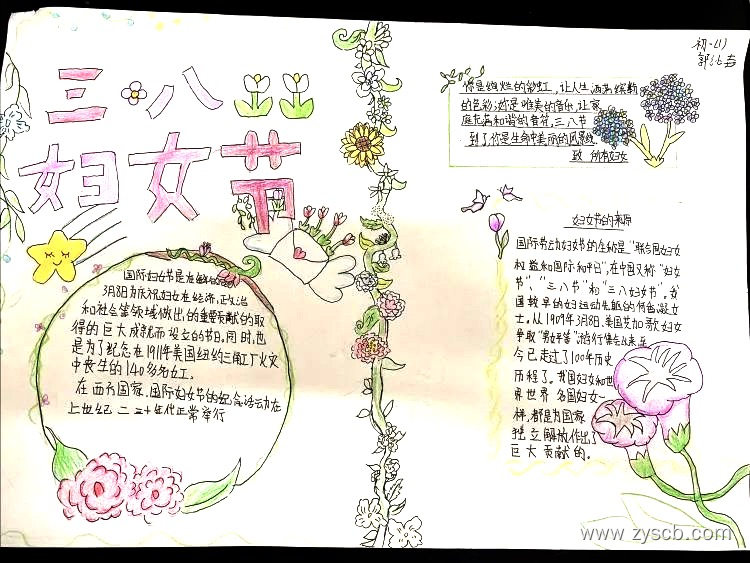 三八
妇女节
国际妇女节是在每年的
3月8日为庆祝妇女在经济,政治
和社会等领域做出的重要贡献的取
得的巨大成就而设立的节日,同时,也
是为了纪念在1911年美国纽约三角工厂火灾
中丧生的140多名女工。
在西方国家,国际妇女节的纪念活动在
上世纪二三十年代正常举行
初一(1)
你是绚烂的彩虹,让人生洒满缤纷
的色彩;你是唯美的音乐,让家
庭充满和谐的音符,三八节
到了你是生命中美丽的风景线
致 所有妇女
妇女节的来源
国际劳动妇女节的全称是"联合国妇女
权益和国际和平日",在中国又称"妇女
节"、"三八节"和"三八妇女节"。我
国较早的妇运动先驱的何香凝女
士。从1909年3月8日,美国芝加哥妇女
争取"男女平等"游行集会以来至
今已走过了100年历史
历程了。我国妇女和世
界世界各国妇女一
样,都是为国家
独立解放作出了
巨大贡献的。
www.zyscb.com